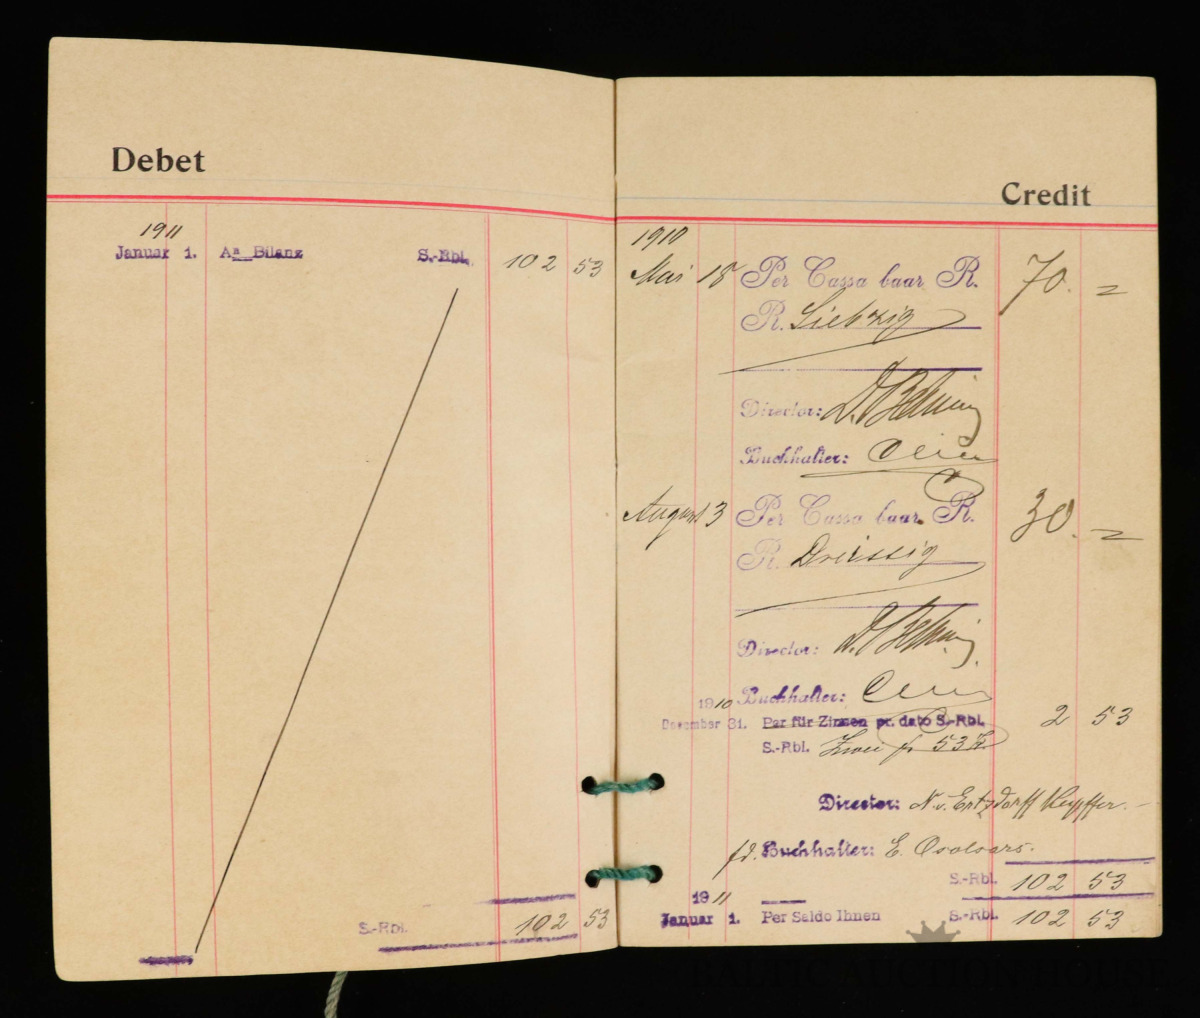 Debet
1911
Januar 1. An Bilanz S.-Rbl. 102 53
S.-Rbl. 102 53
Credit
1910
Mai 18 Per Cassa baar R. 70. =
R. Siebzig
Director:
Buchhalter:
August 3 Per Cassa baar R. 30. =
R. Dreissig
Director:
Buchhalter:
1910
Dezember 31. Per für Zinsen pr. dato S.-Rbl. 2 53
S.-Rbl. Zwei 53 K
Director: N. v. Ertzdorff Kupffer.
fd. Buchhalter: E.
S.-Rbl. 102 53
1911
Januar 1. Per Saldo Ihnen S.-Rbl. 102 53
BALTIC AUCTION HOUSE